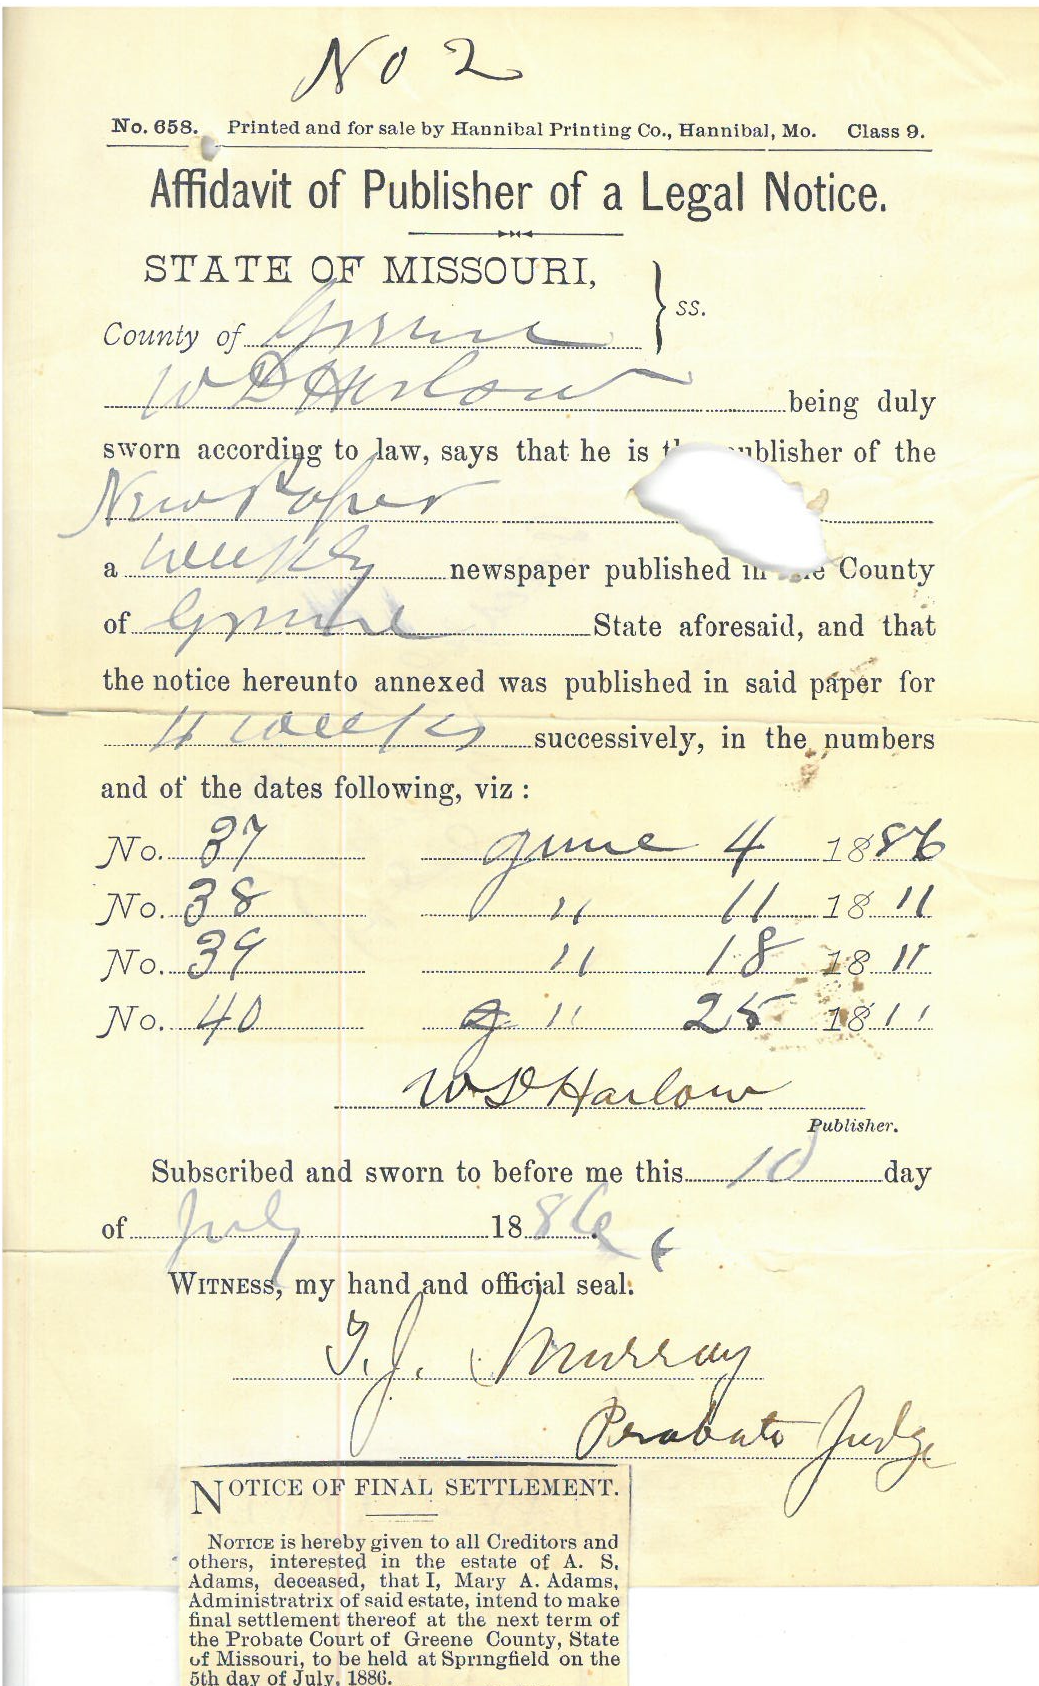 No 2
No. 658. Printed and for sale by Hannibal Printing Co., Hannibal, Mo. Class 9.
Affidavit of Publisher of a Legal Notice.
STATE OF MISSOURI,
County of Greene } ss.
W D Harlow being duly
sworn according to law, says that he is publisher of the
New Paper
a weekly newspaper published in County
of Greene State aforesaid, and that
the notice hereunto annexed was published in said paper for
4 weeks successively, in the numbers
and of the dates following, viz :
No. 37 June 4 1886
No. 38 " 11 18 "
No. 39 " 18 18 "
No. 40 " 25 18 "
W D Harlow
Publisher.
Subscribed and sworn to before me this 10 day
of July 1886.
WITNESS, my hand and official seal.
T. J. Murray
Probate Judge
NOTICE OF FINAL SETTLEMENT.
NOTICE is hereby given to all Creditors and
others, interested in the estate of A. S.
Adams, deceased, that I, Mary A. Adams,
Administratrix of said estate, intend to make
final settlement thereof at the next term of
the Probate Court of Greene County, State
of Missouri, to be held at Springfield on the
5th day of July, 1886.